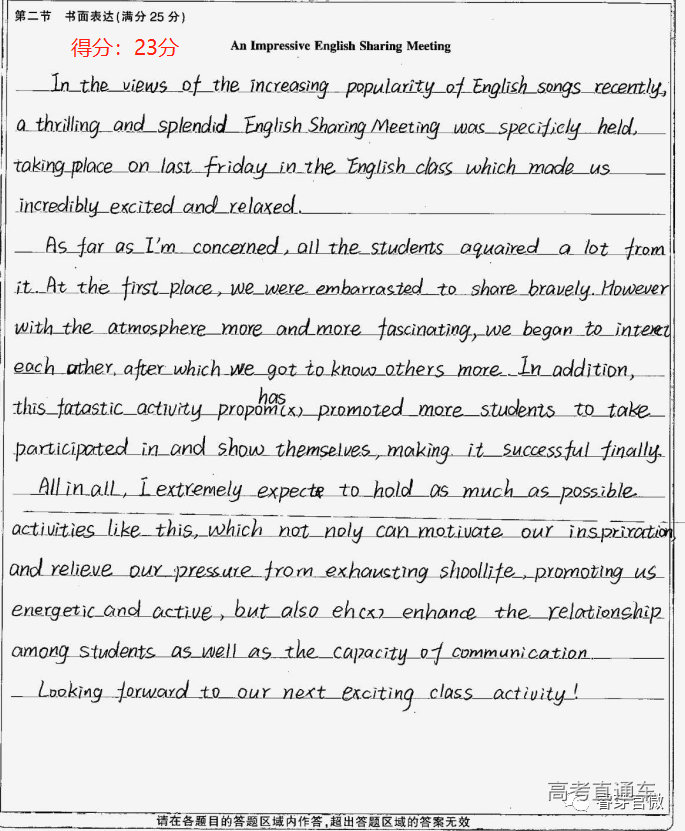 第二节 书面表达(满分 25 分)
得分：23分
An Impressive English Sharing Meeting
In the views of the increasing popularity of English songs recently,
a thrilling and splendid English Sharing Meeting was specificly held,
taking place on last friday in the English class which made us
incredibly excited and relaxed.
As far as I'm concerned, all the students aquaired a lot from
it. At the first place, we were embarrasted to share bravely. However
with the atmosphere more and more fascinating, we began to interect
each other, after which we got to know others more. In addition,
has
this fatastic activity propom(x) promoted more students to take
participated in and show themselves, making it successful finally.
All in all, I extremely expecte to hold as much as possible
activities like this, which not noly can motivate our inspriration
and relieve our pressure from exhausting shoollife, promoting us
energetic and active, but also eh(x) enhance the relationship
among students as well as the capacity of communication.
Looking forward to our next exciting class activity!
高考直通车
睿芽官微
请在各题目的答题区域内作答,超出答题区域的答案无效